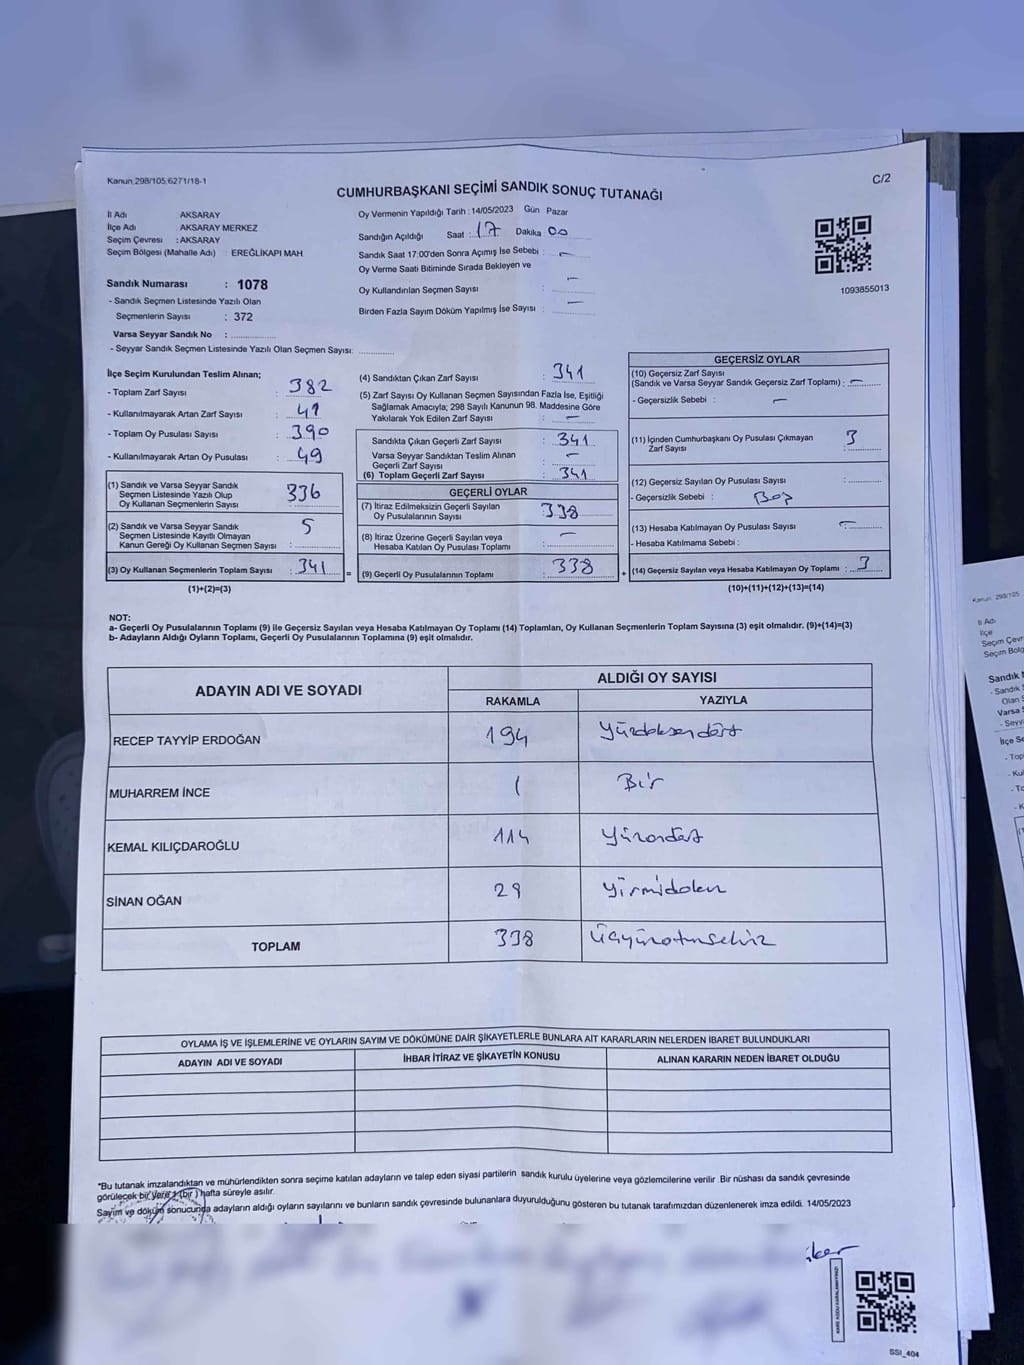 Kanun 298/105.6271/18-1
C/2
CUMHURBAŞKANI SEÇİMİ SANDIK SONUÇ TUTANAĞI
İl Adı : AKSARAY
İlçe Adı : AKSARAY MERKEZ
Seçim Çevresi : AKSARAY
Seçim Bölgesi (Mahalle Adı) : EREĞLİKAPI MAH
Sandık Numarası : 1078
- Sandık Seçmen Listesinde Yazılı Olan
Seçmenlerin Sayısı : 372
Varsa Seyyar Sandık No :
- Seyyar Sandık Seçmen Listesinde Yazılı Olan Seçmen Sayısı:
Oy Vermenin Yapıldığı Tarih : 14/05/2023 Gün Pazar
Sandığın Açıldığı Saat : 17 Dakika 00
Sandık Saat 17:00'den Sonra Açımış İse Sebebi : –
Oy Verme Saati Bitiminde Sırada Bekleyen ve
Oy Kullandırılan Seçmen Sayısı : –
Birden Fazla Sayım Döküm Yapılmış İse Sayısı : –
1093855013
İlçe Seçim Kurulundan Teslim Alınan;
- Toplam Zarf Sayısı : 382
- Kullanılmayarak Artan Zarf Sayısı : 41
- Toplam Oy Pusulası Sayısı : 390
- Kullanılmayarak Artan Oy Pusulası : 49
(1) Sandık ve Varsa Seyyar Sandık
Seçmen Listesinde Yazılı Olup
Oy Kullanan Seçmenlerin Sayısı 336
(2) Sandık ve Varsa Seyyar Sandık
Seçmen Listesinde Kayıtlı Olmayan
Kanun Gereği Oy Kullanan Seçmen Sayısı : 5
(3) Oy Kullanan Seçmenlerin Toplam Sayısı : 341
(1)+(2)=(3)
(4) Sandıktan Çıkan Zarf Sayısı : 341
(5) Zarf Sayısı Oy Kullanan Seçmen Sayısından Fazla İse, Eşitliği
Sağlamak Amacıyla; 298 Sayılı Kanunun 98. Maddesine Göre
Yakılarak Yok Edilen Zarf Sayısı : –
Sandıkta Çıkan Geçerli Zarf Sayısı : 341
Varsa Seyyar Sandıktan Teslim Alınan
Geçerli Zarf Sayısı : –
(6) Toplam Geçerli Zarf Sayısı : 341
GEÇERLİ OYLAR
(7) İtiraz Edilmeksizin Geçerli Sayılan
Oy Pusulalarının Sayısı : 338
(8) İtiraz Üzerine Geçerli Sayılan veya
Hesaba Katılan Oy Pusulası Toplamı : –
= (9) Geçerli Oy Pusulalarının Toplamı : 338
GEÇERSİZ OYLAR
(10) Geçersiz Zarf Sayısı
(Sandık ve Varsa Seyyar Sandık Geçersiz Zarf Toplamı) : –
- Geçersizlik Sebebi : –
(11) İçinden Cumhurbaşkanı Oy Pusulası Çıkmayan
Zarf Sayısı : 3
(12) Geçersiz Sayılan Oy Pusulası Sayısı :
- Geçersizlik Sebebi : Boş
(13) Hesaba Katılmayan Oy Pusulası Sayısı : –
- Hesaba Katılmama Sebebi :
+ (14) Geçersiz Sayılan veya Hesaba Katılmayan Oy Toplamı : 3
(10)+(11)+(12)+(13)=(14)
NOT:
a- Geçerli Oy Pusulalarının Toplamı (9) ile Geçersiz Sayılan veya Hesaba Katılmayan Oy Toplamı (14) Toplamları, Oy Kullanan Seçmenlerin Toplam Sayısına (3) eşit olmalıdır. (9)+(14)=(3)
b- Adayların Aldığı Oyların Toplamı, Geçerli Oy Pusulalarının Toplamına (9) eşit olmalıdır.
ADAYIN ADI VE SOYADI ALDIĞI OY SAYISI
RAKAMLA YAZIYLA
RECEP TAYYİP ERDOĞAN 194 Yüzdoksandört
MUHARREM İNCE 1 Bir
KEMAL KILIÇDAROĞLU 114 Yüzondört
SİNAN OĞAN 29 Yirmidokuz
TOPLAM 338 Üçyüzotuzsekiz
OYLAMA İŞ VE İŞLEMLERİNE VE OYLARIN SAYIM VE DÖKÜMÜNE DAİR ŞİKAYETLERLE BUNLARA AİT KARARLARIN NELERDEN İBARET BULUNDUKLARI
ADAYIN ADI VE SOYADI İHBAR İTİRAZ VE ŞİKAYETİN KONUSU ALINAN KARARIN NEDEN İBARET OLDUĞU
*Bu tutanak imzalandıktan ve mühürlendikten sonra seçime katılan adayların ve talep eden siyasi partilerin sandık kurulu üyelerine veya gözlemcilerine verilir. Bir nüshası da sandık çevresinde
görülecek bir yere 1 (bir) hafta süreyle asılır.
Sayım ve döküm sonucunda adayların aldığı oyların sayılarını ve bunların sandık çevresinde bulunanlara duyurulduğunu gösteren bu tutanak tarafımızdan düzenlenerek imza edildi. 14/05/2023
SSI_404
Kanun 298/105
İl Adı
İlçe
Seçim Çevr
Seçim Bölg
Sandık
- Sandık
Olan
Varsa
- Seyy
İlçe Se
- Top